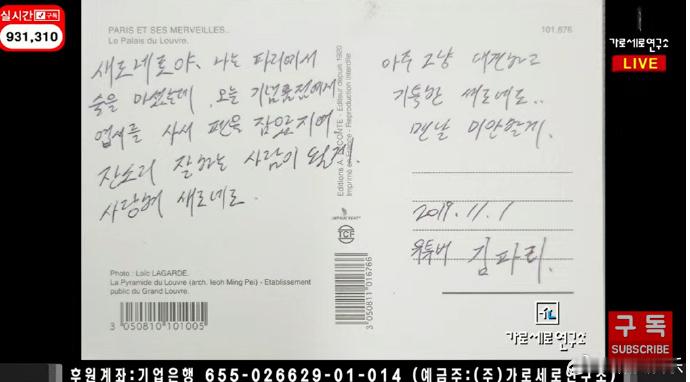 실시간 구독
931,310
PARIS ET SES MERVEILLES..
Le Palais du Louvre.
101.676
가로세로연구소
LIVE
새로네로야. 나는 파리에서
술을 마셨는데, 오늘 기념품점에서
엽서를 사서 펜을 잡았지여.
잔소리 잘하는 사람이 될게!
사랑해 새로네로.
아주 그냥 대견하고
기특한 새로네로..
맨날 미안할게.
2019.11.1
유튜버 김파리.
Editions A. LECONTE - Editeur depuis 1920
Imprimé en France - Reproduction interdite
IMPRIM'VERT
TCF
3 050811 016766
Photo : Loïc LAGARDE.
La Pyramide du Louvre (arch. Ieoh Ming Pei) - Etablissement
public du Grand Louvre.
3 050810 101005
가로세로연구소
구독
SUBSCRIBE
후원계좌:기업은행 655-026629-01-014 (예금주:(주)가로세로연구소)